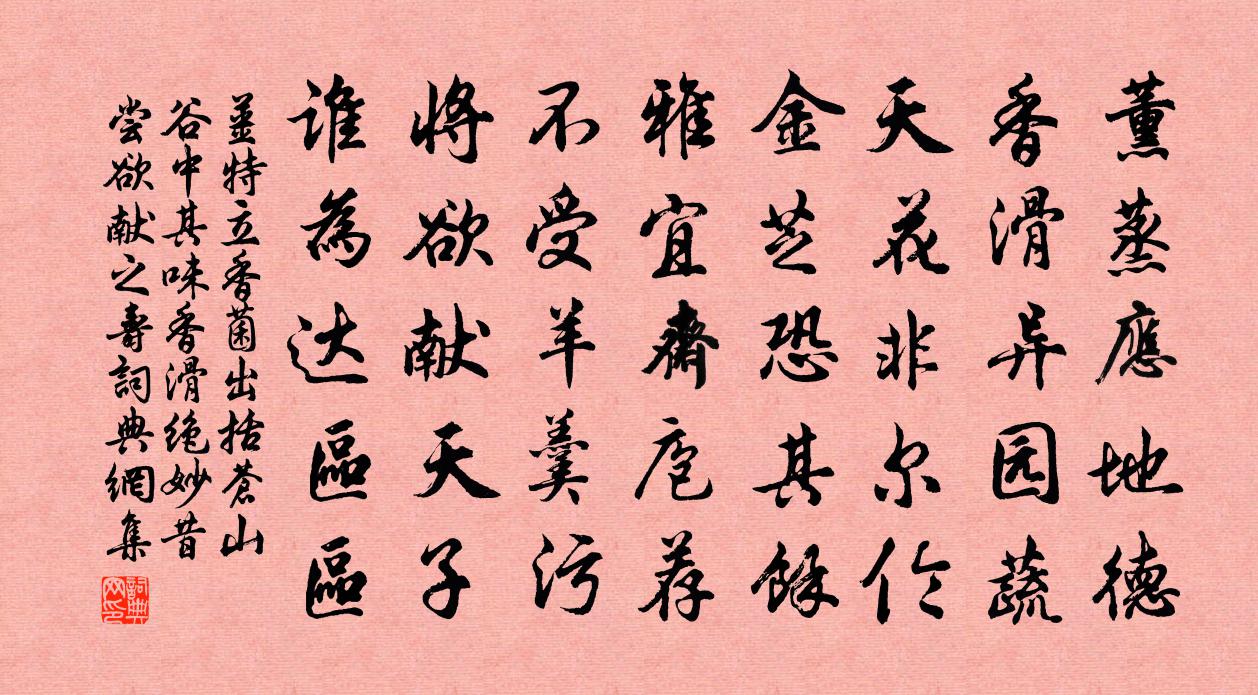 薰蒸應地德
香滑异园蔬
天花非尔伦
金芝恐其餘
雅宜齋庖荐
不受羊羹污
將欲献天子
谁為达區區
薑特立香菌出括蒼山
谷中其味香滑绝妙昔
尝欲献之壽詞典網集
詞典
网印